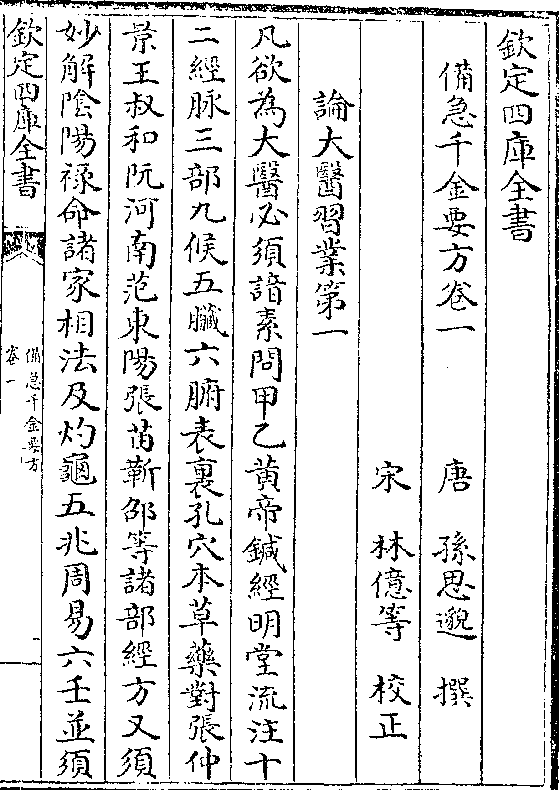 欽定四庫全書
備急千金要方卷一
唐 孫思邈 撰
宋 林億等 校正
論大醫習業第一
凡欲為大醫必須諳素問甲乙黄帝鍼經明堂流注十
二經脉三部九候五臟六腑表裏孔穴本草藥對張仲
景王叔和阮河南范東陽張苗靳邵等諸部經方又須
妙解陰陽禄命諸家相法及灼龜五兆周易六壬並須
欽定四庫全書
備急千金要方
卷一
一